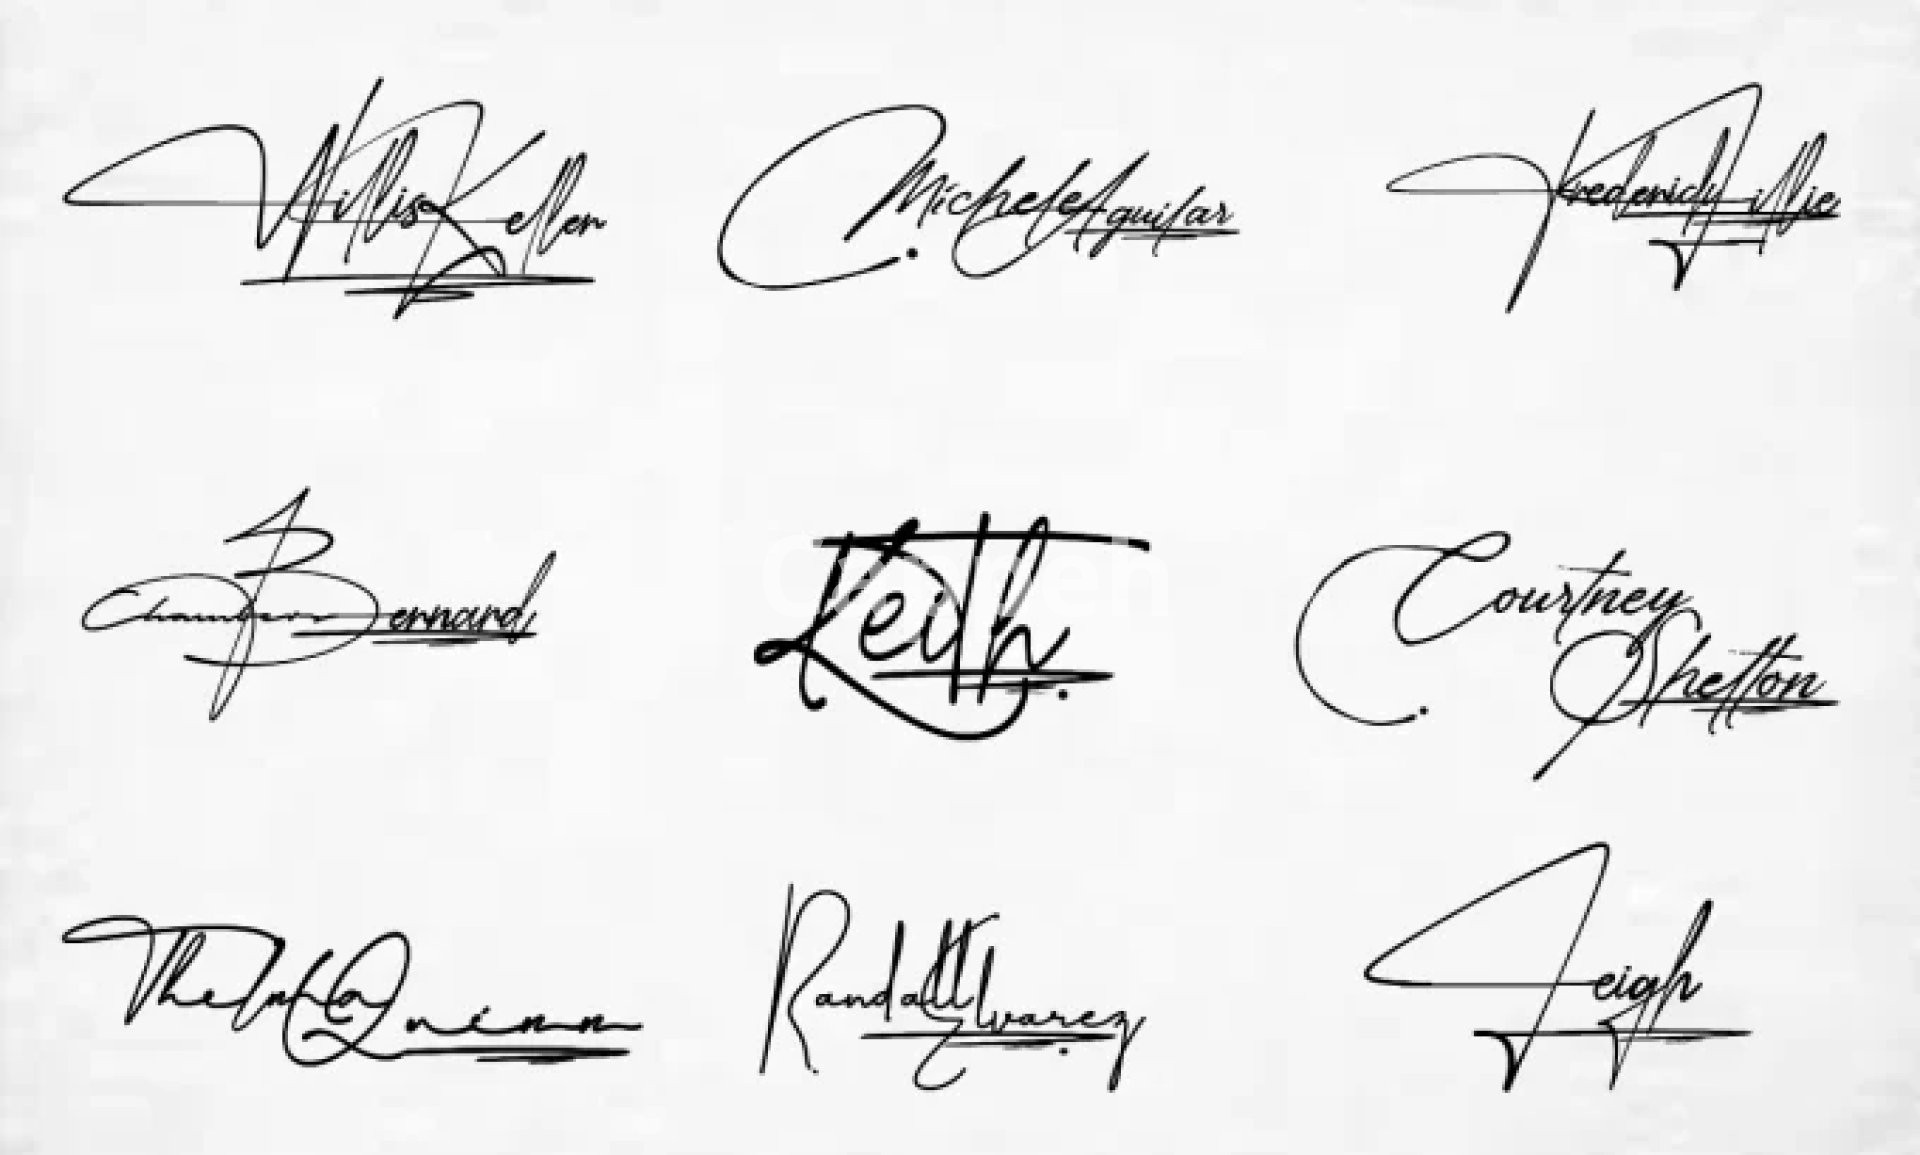 Willis Keller
Michele Aguilar
Frederick Lillie
Chambers Bernard
Keith.
Courtney
Shelton
Thelma Quinn
Randall Alvarez
Leigh